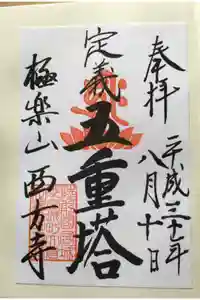 奉拝
平成三十年
八月十日
定義
五重塔
極楽山西方寺